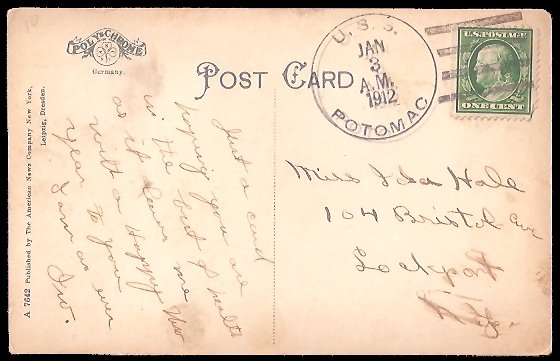 POLYCHROME
Germany.
POST CARD
U.S.S.
JAN
3
A.M.
1912
POTOMAC
U.S. POSTAGE
ONE CENT
A 7642 Published by The American News Company New York,
Leipzig, Dresden.
Just a card
hoping you are
in the best of health
as it leaves me
with a Happy New
year to you
I am as ever
Irv.
Miss Ida Hall
104 Bristol Ave
Lockport
N.Y.